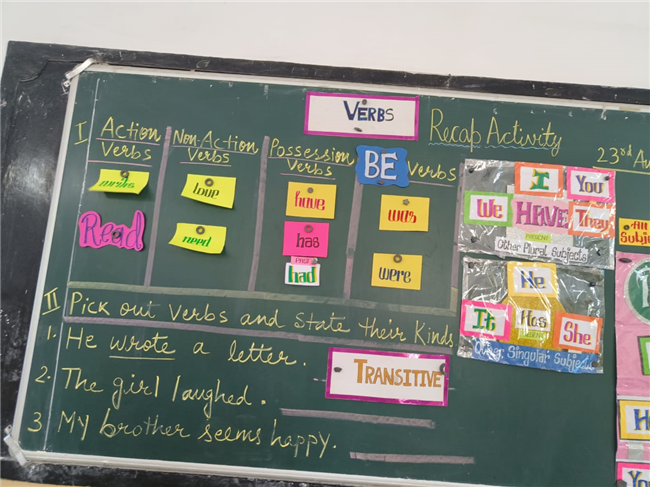 VERBS
Recap Activity
23rd Au
I
Action Verbs
Non-Action Verbs
Possession Verbs
BE Verbs
Read
love
need
have
has
PAST
had
was
were
I
You
We
HAVE
They
PRESENT
Other Plural Subjects
He
It
Has
She
Other Singular Subjects
All
Subje
II Pick out verbs and state their Kinds
1. He wrote a letter.
TRANSITIVE
2. The girl laughed.
3 My brother seems happy.
H
You